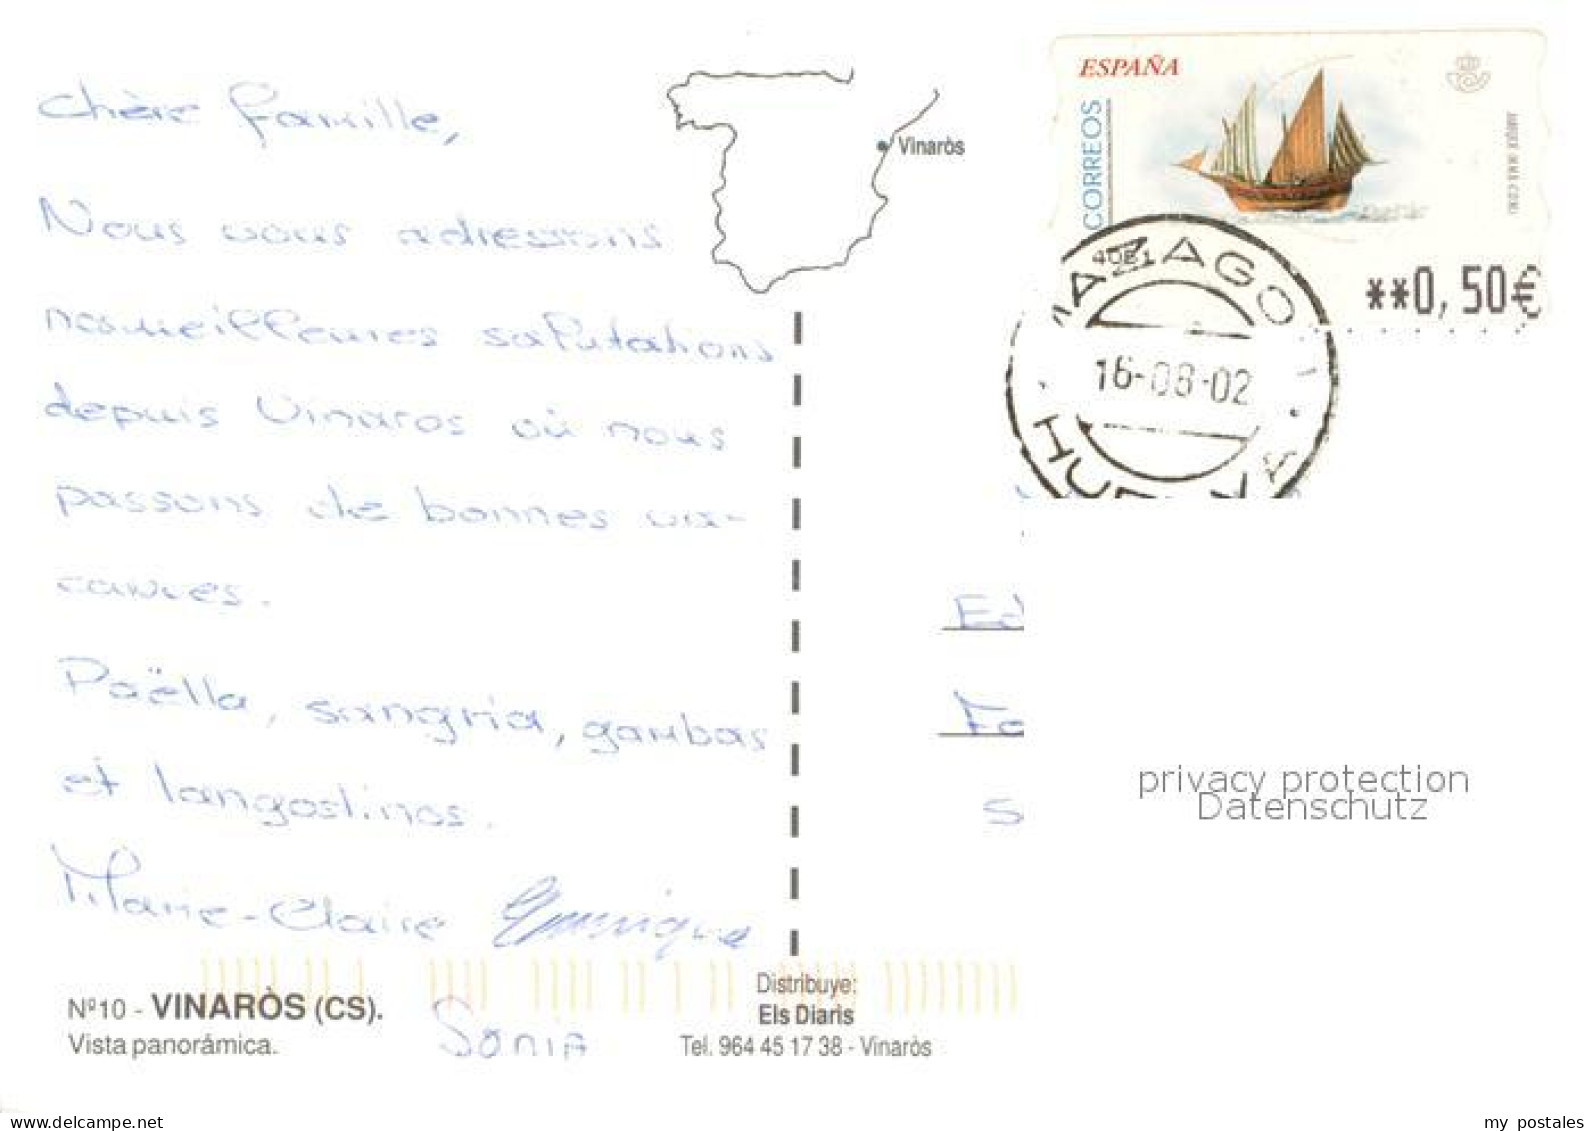 Chère famille,
Nous vous adressons
nos meilleures salutations
depuis Vinaros où nous
passons de bonnes va-
cances.
Paëlla, sangria, gambas
et langostinos.
Marie-Claire
Sonia
Vinaròs
Nº10 - VINARÒS (CS).
Vista panorámica.
Distribuye:
Els Diaris
Tel. 964 45 17 38 - Vinaròs
ESPAÑA
CORREOS
**0,50€
4081
MAZAGO
16-08-02
Ed
Fo
S
privacy protection
Datenschutz
my postales